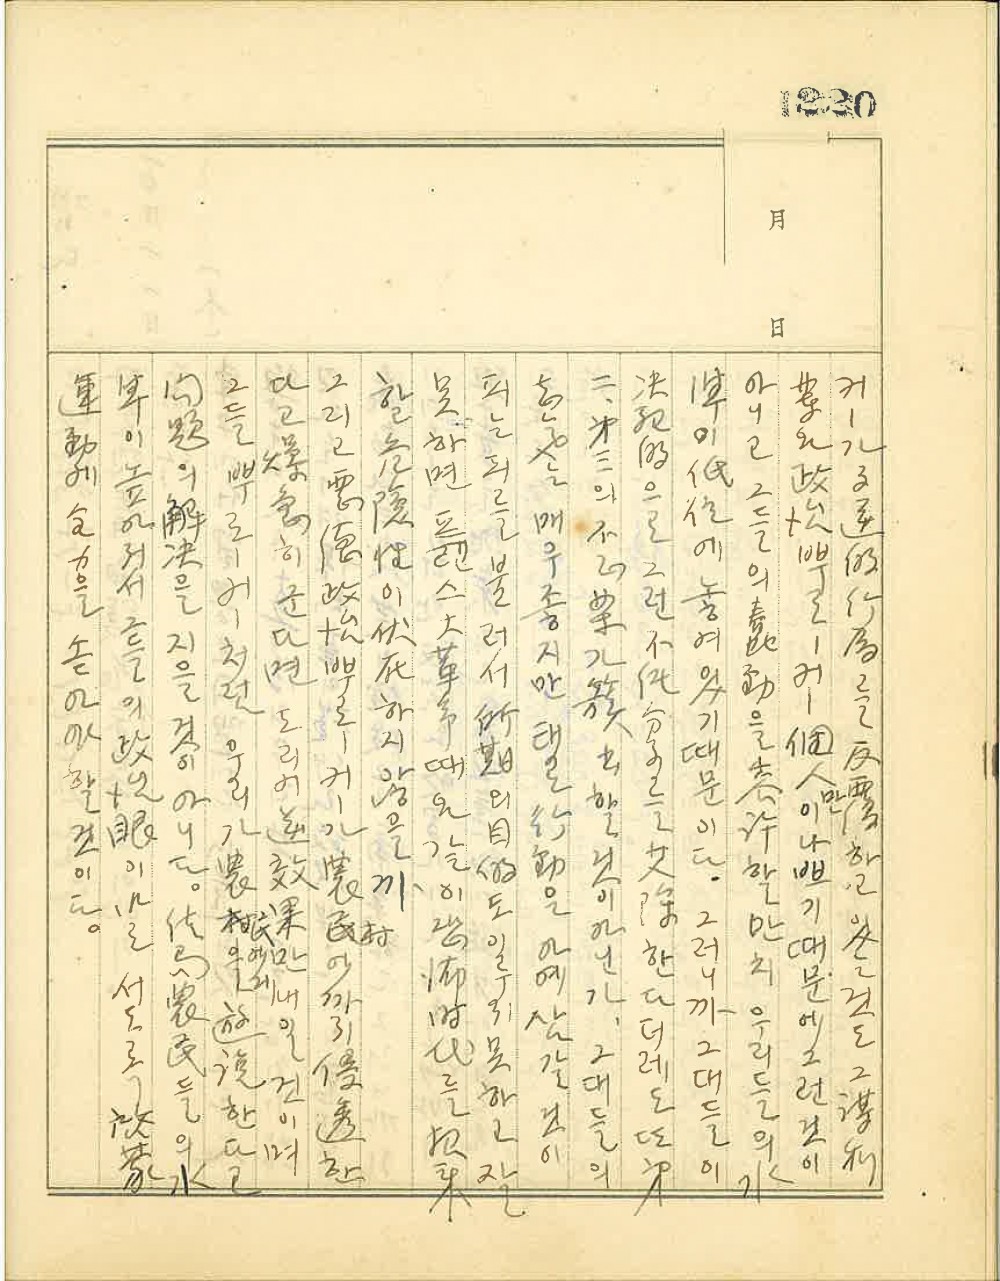 1220
月
日
커-가 叉逆的 行爲를 反覆하고 있는 것도 그 謀利
輩와 政治뿌로-커- 個人만이 나쁘기 때문에 그런 것이
아니고 그들의 蠢動을 容許할 만치 우리들의 水
準이 低位에 놓여 있기 때문이다. 그러니까 그대들이
決死的으로 그런 不純分子를 艾除한다 더레도 또 第
二、第三의 不正輩가 簇出할 것이 아닌가、그대들의
은 매우 좋지만 태로 行動은 아예 삼갈 것이
피는 피를 불러서 所期의 目的도 일우지 못하고 잘
못하면 프랜스 大革命 때와 같이 恐怖時代를 招来
할 危険性이 伏在하지 않을까、
그리고 惡德 政治뿌로-커-가 農民村에까지 侵透한
다고 燥急히 군다면 도리어 逆效果만 내일 것이며
그들 뿌로-커-처럼 우리가 農村을 民에게 遊說한다고
問題의 解決을 지을 것이 아니다。 農民들의 水
準이 높아져서 그들의 政治眼이 서도록 啓蒙
運動에 全力을 쏟아야 할 것이다。